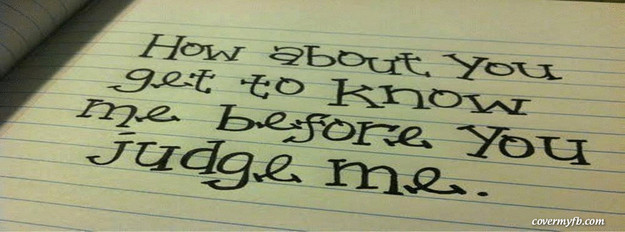 How about you
get to know
me before you
judge me.
covermyfb.com